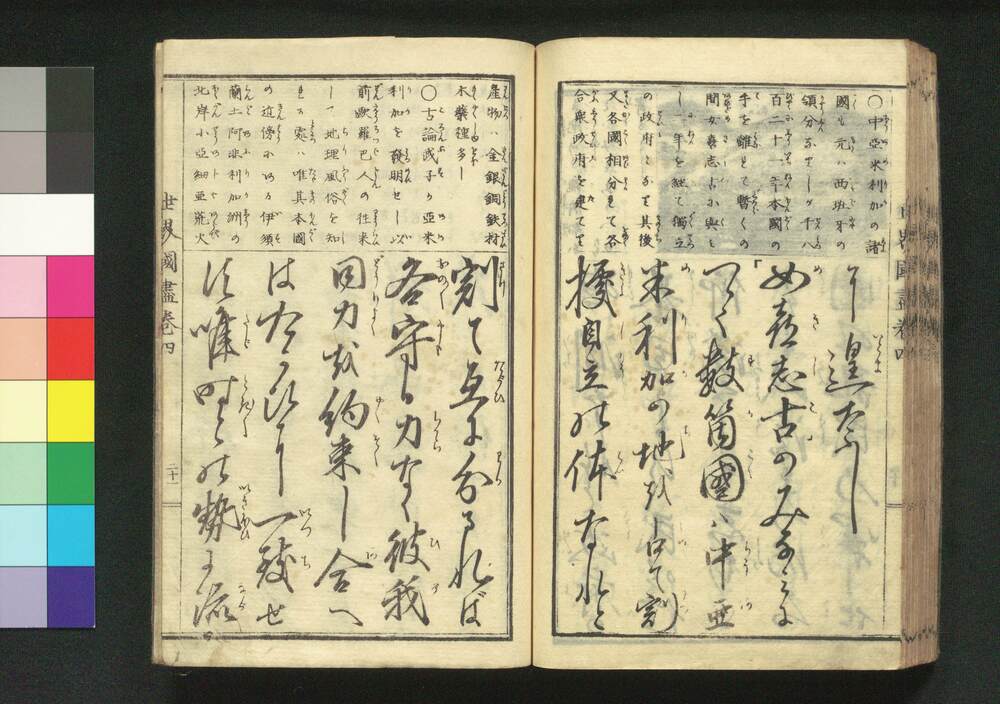 〇中亜米利加の諸
國も元ハ西班牙の
領分なりしが千八
百二十一年本國の
手を離れて暫くの
間女喜志古に與
し一年を経て獨立
の政府となり其後
又各國相分れて各
合衆政府を建てり
に遑なし
女喜志古のみなみに
つゞく數箇國ハ中亜
米利加の地峡にて割
據自立の体なれど
産物ハ金銀銅鉄材
木藥種多し
〇古論武子が亜米
利加を發明せし以
前歐羅巴人の往来
して地理風俗を知
れる處ハ唯其本國
の近傍なる伊須
蘭土阿非利加洲の
北岸小亜細亜荒火
割て互に分るれば
各守る力なく彼我
同力を約束し合へ
はたがひに一致せ
ず唯時々の勢に流
世界國盡巻四
二十一